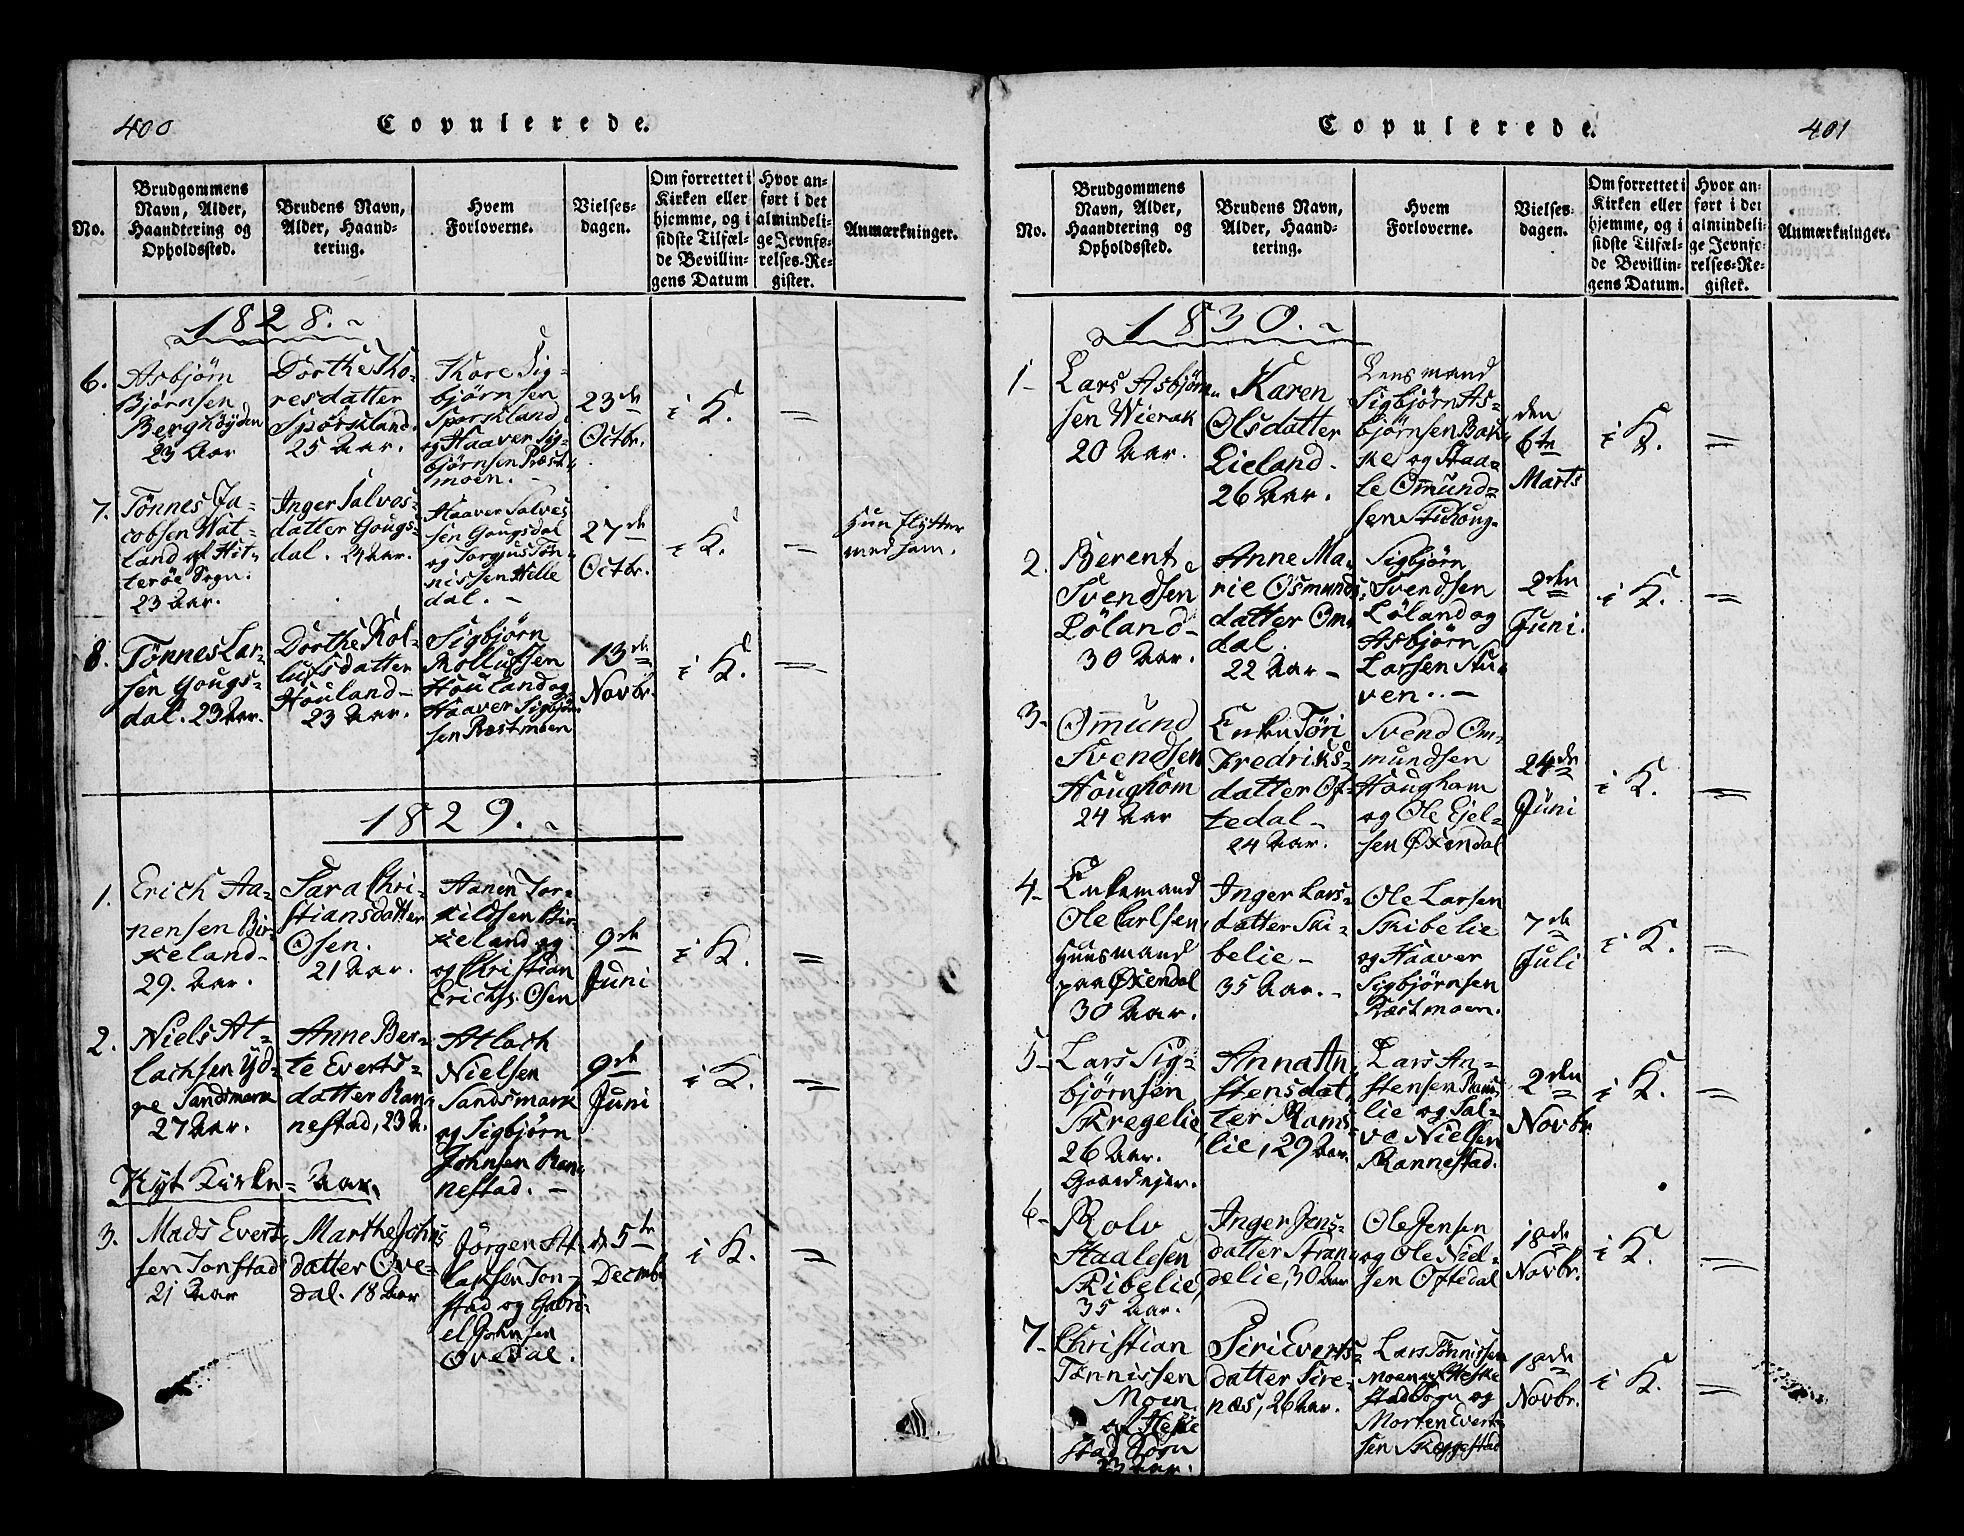 400
Copulerede.
No.
Brudgommens
Navn, Alder,
Haandtering og
Opholdssted.
Brudens Navn,
Alder, Haand-
tering.
Hvem
Forloverne.
Vielses-
dagen.
Om forrettet i
Kirken eller
hjemme, og i
sidste Tilfæl-
de Bevillin-
gens Datum
Hvor an-
ført i det
almindeli-
ge Jevnfø-
relses-Re-
gister.
Anmærkninger.
1828.
6.
Asbjørn
Bjørnsen
Berghöyden
23 Aar
Dorthe Tho-
resdatter
Spörskland.
25 Aar.
Thore Sig-
bjørnsen
Sporskland
og Haaver Sig-
bjørnsen Præst-
moen.
23de
Octbr.
i K.
=
7.
Tønnes Ja-
cobsen Wat-
land af Hit-
terøe Sogn.
23 Aar.
Inger Salves-
datter Gougs-
dal. 24 Aar.
Haaver Salves
sen Gougsdal
og Torgus Tön-
nissen Helle
dal.
27de
Octbr.
i K.
=
Hun flytter
med ham.
8.
Tønnes Lar-
sen Gougs-
dal. 23 Aar.
Dorthe Rol-
lufsdatter
Houland
23 Aar.
Sigbjørn
Rollufsen
Houland og
Haaver Sigbjørn
sen Præstmoen
13de
Novbr.
i K.
=
1829.
1.
Erich Aa-
nensen Bir-
keland
29. Aar.
Sara Chri-
stiansdatter
Osen.
21 Aar.
Aanen Tor-
kildsen Bir
keland og
og Christian
Erichs. Osen
9de
Juni
i K.
=
2.
Niels At-
lachsen Yd-
re Sandsmark
27 Aar.
Anne Ber-
te Everts-
datter Ran-
nestad, 23 A.
Atlach
Nielsen
Sandsmark
og Sigbjørn
Johnsen Ran-
nestad.
9de
Juni
i K.
=
Nyt Kirke-Aar.
3.
Mads Evert-
sen Tonstad
21 Aar
Marthe Johns
datter Ove-
dal. 18 Aar
Jörgen At-
laksen Ton-
stad og Gabri-
el Johnsen
Ovedal.
d. 5te
Decmb
i K.
=
401
Copulerede.
No.
Brudgommens
Navn, Alder,
Haandtering og
Opholdssted.
Brudens Navn,
Alder, Haand-
tering.
Hvem
Forloverne.
Vielses-
dagen.
Om forrettet i
Kirken eller
hjemme, og i
sidste Tilfæl-
de Bevillin-
gens Datum.
Hvor an-
ført i det
almindeli-
ge Jevnfø-
relses-Re-
gister.
Anmærkninger.
1830.
1
Lars Asbjørn-
sen Wierak
20 Aar.
Karen
Olsdatter
Lieland.
26 Aar.
Lensmand
Sigbjørn As-
bjørnsen Bak-
ke og Staa-
le Omund-
sen
den
6te
Marts
i K.
=
2.
Berent
Svendsen
Löland
30 Aar.
Anne Ma-
rie Osmunds
datter Om-
dal.
22 Aar
Sigbjørn
Svendsen
Löland og
Asbjørn
Larsen Stu-
ven.
2den
Juni.
i K.
=
3
Omund
Svendsen
Houghom
24 Aar
Enken Töri
Fredriks-
datter Of-
tedal
24 Aar.
Svend Om-
mundsen
Hougham
og Ole Ejel-
sen Øxendal
24de
Jüni
i K.
=
4
Enkemand
Ole Carlsen
Huusmand
paa Øxendal
30 Aar.
Inger Lars-
datter Ski-
belie
35 Aar.
Ole Larsen
Skibelie
og Haaver
Sigbjørnsen
Præstmoen.
7de
Juli
i K.
=
5
Lars Sig-
bjørnsen
Skregelie
26 Aar.
Gaardejer.
Anna An-
stensdat-
ter Rams-
lie, 29 Aar.
Lars An-
stensen Rams
lie og Sal-
ve Nielsen
Rannestad.
2den
Novbr
i K.
=
6
Rolv
Staalesen
Skibelie,
35 Aar.
Inger Jens-
datter Stran-
delie, 30 Aar
Ole Jensen
og Ole Niel-
sen Oftedal
18de
Novbr.
i K.
=
7
Christian
Tönnissen
Moen
af Heske
stad Sogn
23 Aar.
Siri Everts-
datter Sire-
næs, 26 Aar.
Lars Tönnissen
Moen af Heske
stad Sogn og
Morten Evert-
sen Skeggestad
18de
Novbr.
i K.
=